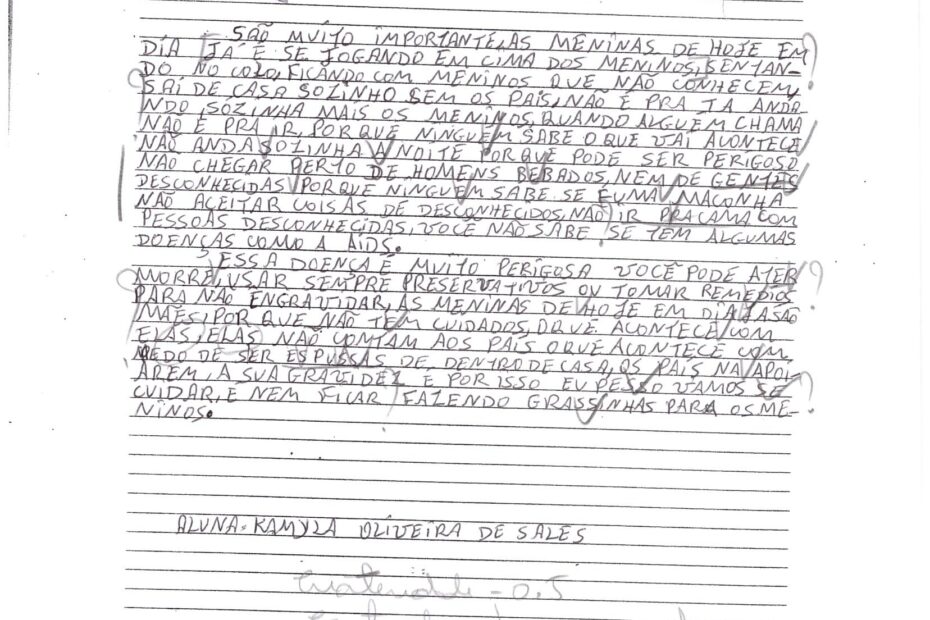 SÃO MUITO IMPORTANTE, AS MENINAS DE HOJE EM
DIA JÁ É SE JOGANDO EM CIMA DOS MENINOS, SENTAN-
DO NO COLO, FICANDO COM MENINOS QUE NÃO CONHECEM,
SAI DE CASA SOZINHO SEM OS PAÍS, NÃO É PRA TA ANDA
NDO SÓZINHA MAIS OS MENINOS, QUANDO ALGUÉM CHAMA
NÃO É PRA IR, PORQUE NINGUÉM SABE O QUE VAI ACONTECE
NÃO ANDA SOZINHA A NOITE PORQUE PODE SER PERIGOSO
NÃO CHEGAR PERTO DE HOMENS BEBADOS, NEM DE GENTES
DESCONHECIDAS PORQUE NINGUÉM SABE SE É UMA MACONHA
NÃO ACEITAR COISAS DE DESCONHECIDOS, NÃO IR PRA CAMA COM
PESSOAS DESCONHECIDAS, VOCÊ NÃO SABE SE TEM ALGUMAS
DOENÇAS COMO A AIDS.
ESSA DOENÇA É MUITO PERIGOSA VOCÊ PODE ATER ?
MORRE, USAR SEMPRE PRESERVATIVOS OU TOMAR REMEDIOS
PARA NÃO ENGRAVIDAR, AS MENINAS DE HOJE EM DIA JA SÃO
MÃES, POR QUE NÃO TÊM CUIDADOS, O QUE ACONTECE COM
ELAS, ELAS NÃO CONTAM AOS PAÍS O QUE ACONTECE COM
MEDO DE SER ESPUSSAS DE DENTRO DE CASA, OS PAÍS NA APOI-
AREM, A SUA GRAVIDEZ E POR ISSO EU PESSO VAMOS SE ?
CUIDAR, E NEM FICAR FAZENDO GRASSINHAS PARA OS ME-
NINOS.
ALUNA: KAMYLA OLIVEIRA DE SALES
- 0.5